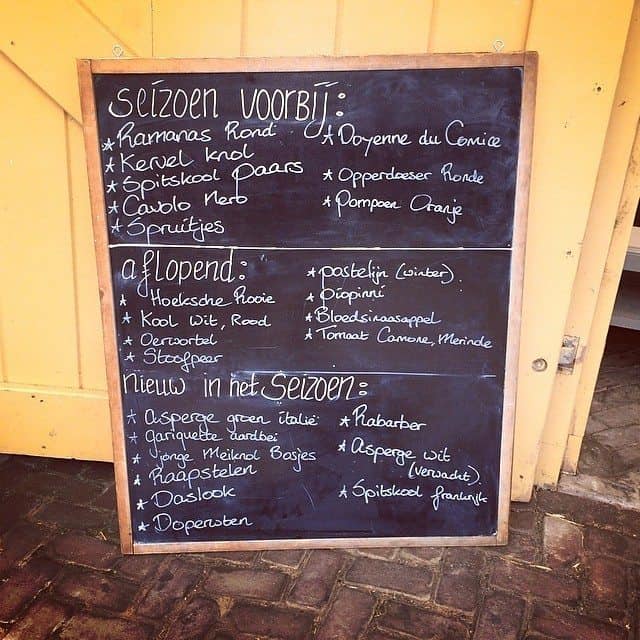 Seizoen voorbij:
* Ramanas Rond
* Kervel knol
* Spitskool paars
* Cavolo Nero
* Spruitjes
* Doyenne du Comice
* Opperdoeser Ronde
* Pompoen Oranje
aflopend:
* Hoeksche Rooie
* Kool Wit, Rood
* Oerwortel
* Stoofpeer
* postelijn (winter)
* piopinni
* Bloedsinaasappel
* Tomaat Camone, Merinde
nieuw in het Seizoen:
* Asperge groen italië
* gariguette aardbei
* jonge Meiknol Bosjes
* Raapstelen
* Daslook
* Doperwten
* Rabarber
* Asperge wit
(verwacht).
* Spitskool frankrijk